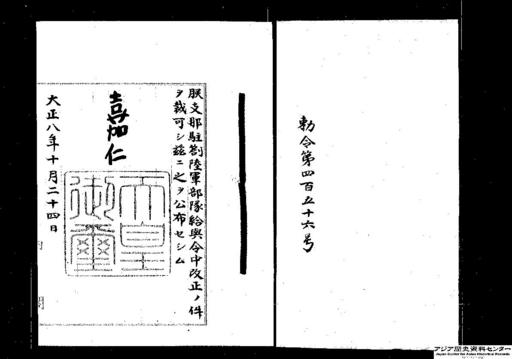 勅令第四百五十六号
朕支那駐劄陸軍部隊給與令中改正ノ件
ヲ裁可シ茲ニ之ヲ公布セシム
嘉仁
天皇御璽
大正八年十月二十四日
アジア歴史資料センター
Japan Center for Asian Historical Records